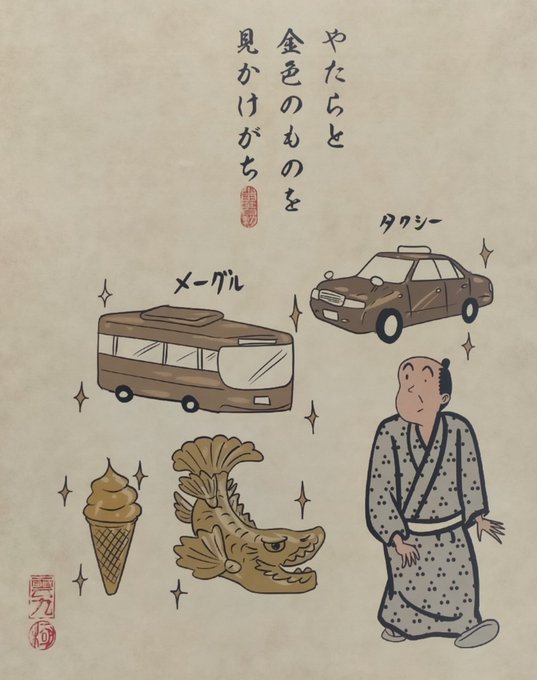 やたらと
金色のものを
見かけがち
タクシー
メーグル